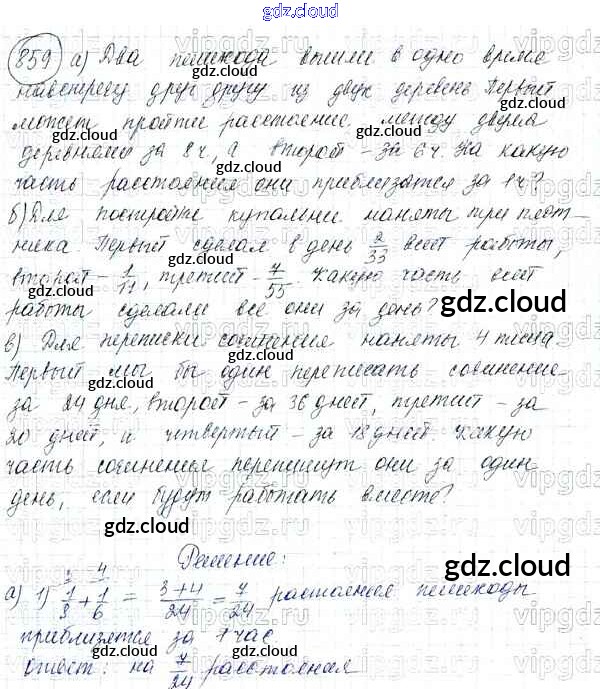 gdz.cloud
859 а) Два пешехода вышли в одно время
навстречу друг другу из двух деревень. Первый
может пройти расстояние между двумя
деревнями за 8 ч, а второй - за 6 ч. На какую
часть расстояния они приблизятся за 1 ч?
б) Для постройки купальни наняты три плот-
ника. Первый сделал в день 2/33 всей работы,
второй - 1/11, третий - 7/55. Какую часть всей
работы сделали все они за день?
в) Для переписки сочинения наняты 4 писца.
Первый мог бы один переписать сочинение
за 24 дня, второй - за 36 дней, третий - за
20 дней, и четвертый - за 18 дней. Какую
часть сочинения перепишут они за один
день, если будут работать вместе?
Решение:
а) 1) 1/8 + 1/6 = 3+4/24 = 7/24 растояния пешеходы
приблизятся за 1 час
ответ: на 7/24 расстояния
gdz.cloud
vipgdz.ru